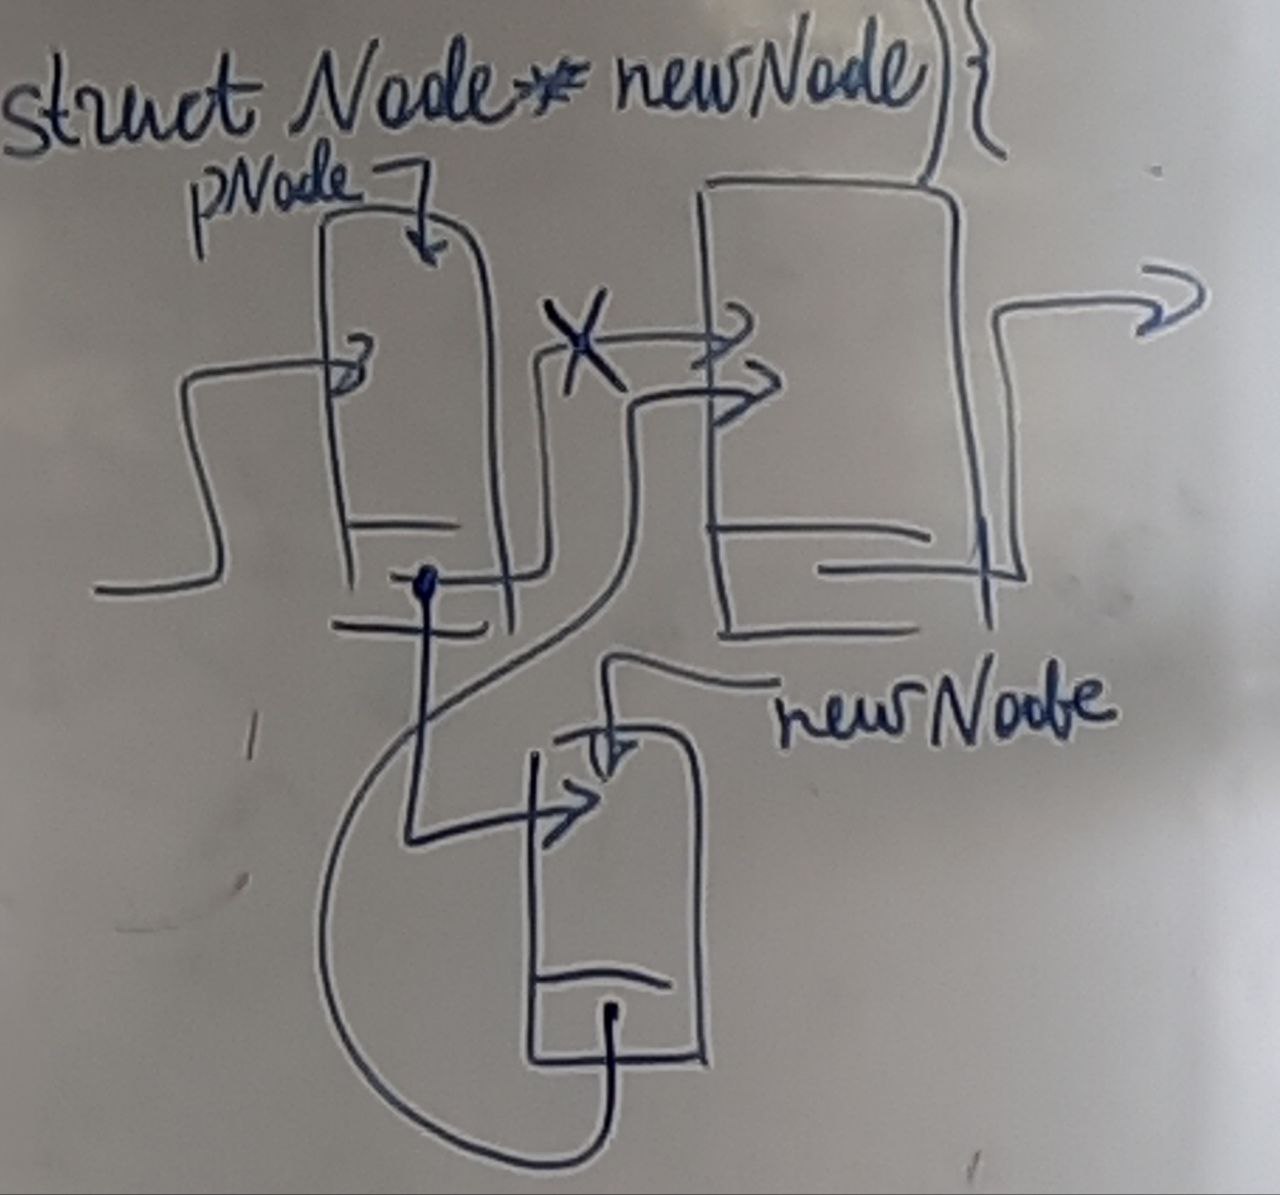 struct Node* newNode) {
pNode
newNode